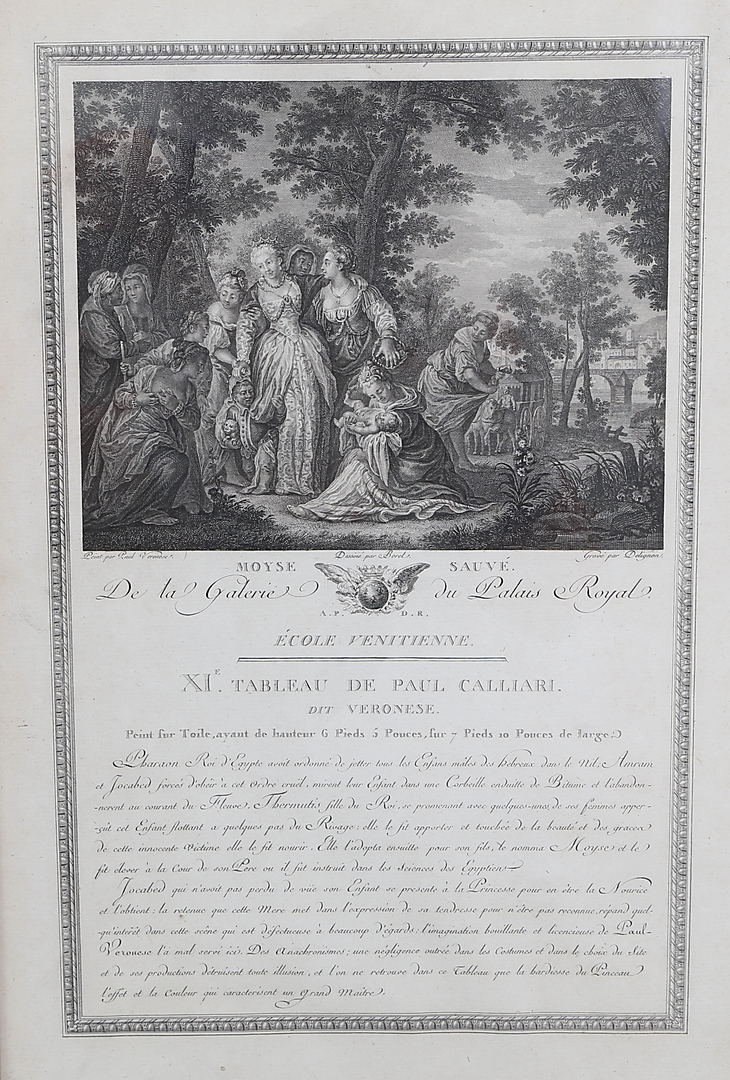 Peint par Paul Veronese. Dessiné par Borel. Gravé par Delignon.
MOYSE SAUVÉ.
De la Galerie du Palais Royal.
A.P. D.R.
ÉCOLE VENITIENNE.
XIᴱ. TABLEAU DE PAUL CALLIARI.
DIT VERONESE.
Peint sur Toile, ayant de hauteur 6 Pieds 5 Pouces, sur 7 Pieds 10 Pouces de large.
Pharaon Roi d'Egypte avoit ordonné de jetter tous les Enfans mâles des hebreux dans le Nil; Amram
et Jocabed forcés d'obéir à cet Ordre cruël, mirent leur Enfant dans une Corbeille enduitte de Bitume et l'abandon-
-nerent au courant du Fleuve. Thermutis fille du Roi, se promenant avec quelques-unes de ses femmes apper-
-çut cet Enfant flottant a quelques pas du Rivage: elle le fit apporter et touchée de la beauté et des graces
de cette innocente Victime elle le fit nourir. Elle l'adopta ensuitte pour son fils, le nomma Moyse et le
fit elever à la Cour de son Pere ou il fut instruit dans les Sciences des Egyptiens
Jocabed qui n'avoit pas perdu de vüe son Enfant se presente à la Princesse pour en être la Nourice
et l'obtient: la retenue que cette Mere met dans l'expression de sa tendresse pour n'être pas reconnue, répand quel-
qu'interêt dans cette scêne qui est défectueuse à beaucoup d'égards: l'imagination bouillante et licencieuse de Paul-
Veronese l'a mal servi ici. Des Anachronismes; une négligence outrée dans les Costumes et dans le choix du Site
et de ses productions détruisent toute illusion, et l'on ne retrouve dans ce Tableau que la hardiesse du Pinceau
l'effet et la Couleur qui caracterisent un Grand Maître.